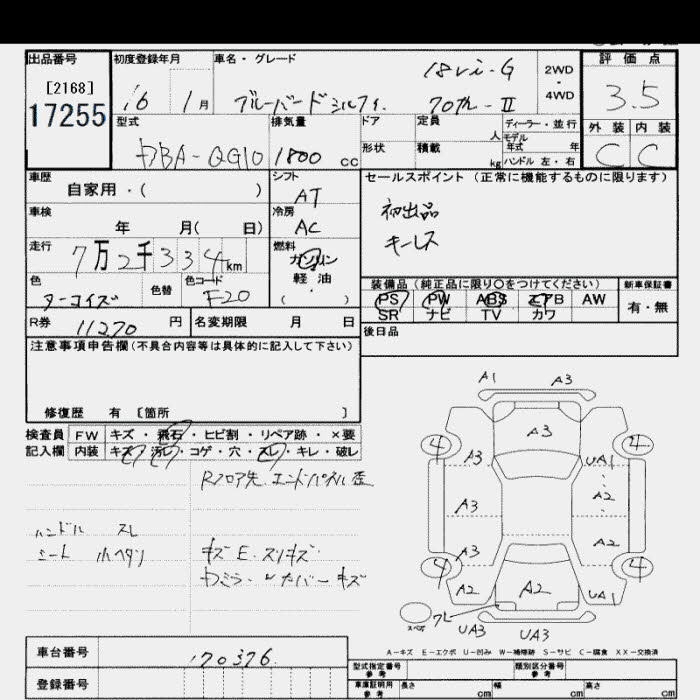 出品番号
[2168]
17255
初度登録年月
16 1月
車名・グレード
ブルーバードシルフィ
18vi-G
70th-II
2WD
・
4WD
評価点
3.5
外装 内装
C C
型式
DBA-QG10
排気量
1800 cc
ドア
形状
定員 人
積載 kg
ディーラー・並行
モデル
年式 年
ハンドル 左・右
車歴
自家用・( )
シフト
AT
セールスポイント (正常に機能するものに限ります)
初出品
キーレス
車検
年 月( 日)
冷房
AC
走行
7万2千334km
燃料
ガソリン
軽・油
( )
色
ターコイズ
色替
色コード
F20
装備品 (純正品に限り○をつけてください)
PS PW ABS エアB AW
SR ナビ TV カワ
新車保証書
有・無
R券 11270 円
名変期限 月 日
後日品
注意事項申告欄(不具合内容等は具体的に記入して下さい)
修復歴 有 [箇所 ]
検査員
記入欄
FW キズ・飛石・ヒビ割・リペア跡・×要
内装 キズ・汚レ・コゲ・穴・スレ・キレ・破レ
Rフロア先 エンドパネル歪
ハンドル スレ
シート 小ヘタリ
キズ E. スリキズ
A1 A3
A3
4 4
A3 UA1
A3 A2
A3 A2
4 4
A2 A2 UA1
スペア
ワレ
UA3 UA3
A-キズ E-エクボ U-凹み W-補修跡 S-サビ C-腐食 XX-交換済
車台番号 170376
登録番号
型式指定番号
参考
類別区分番号
参考
車庫証明用
参考
長さ cm 幅 cm 高さ cm